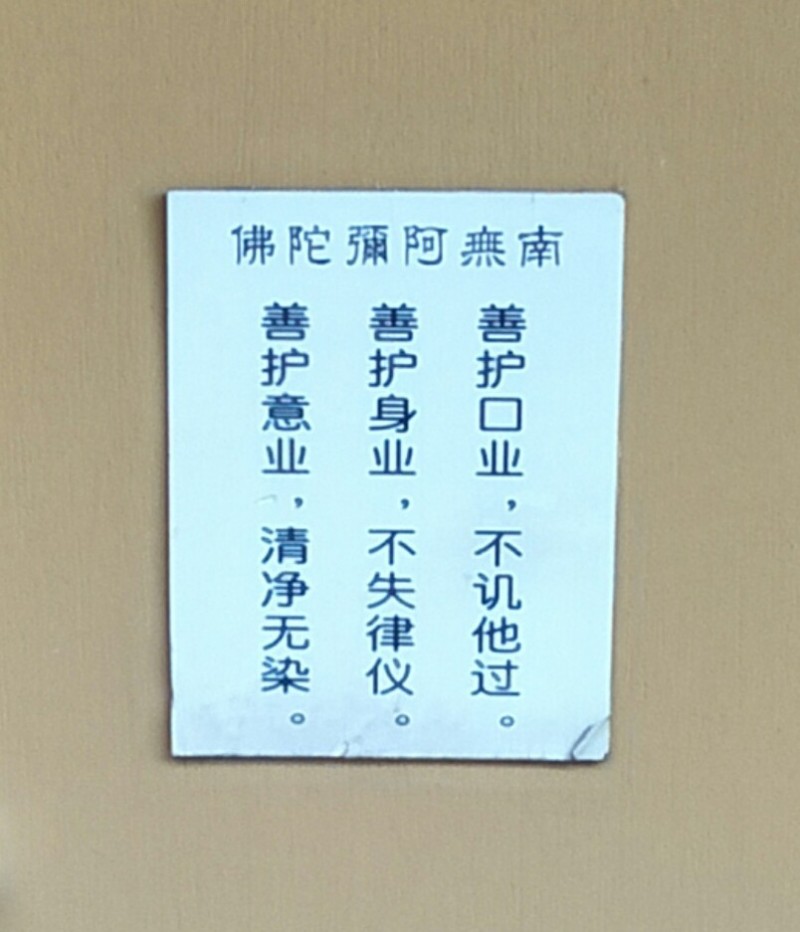 南無阿彌陀佛
善护口业，不讥他过。
善护身业，不失律仪。
善护意业，清净无染。